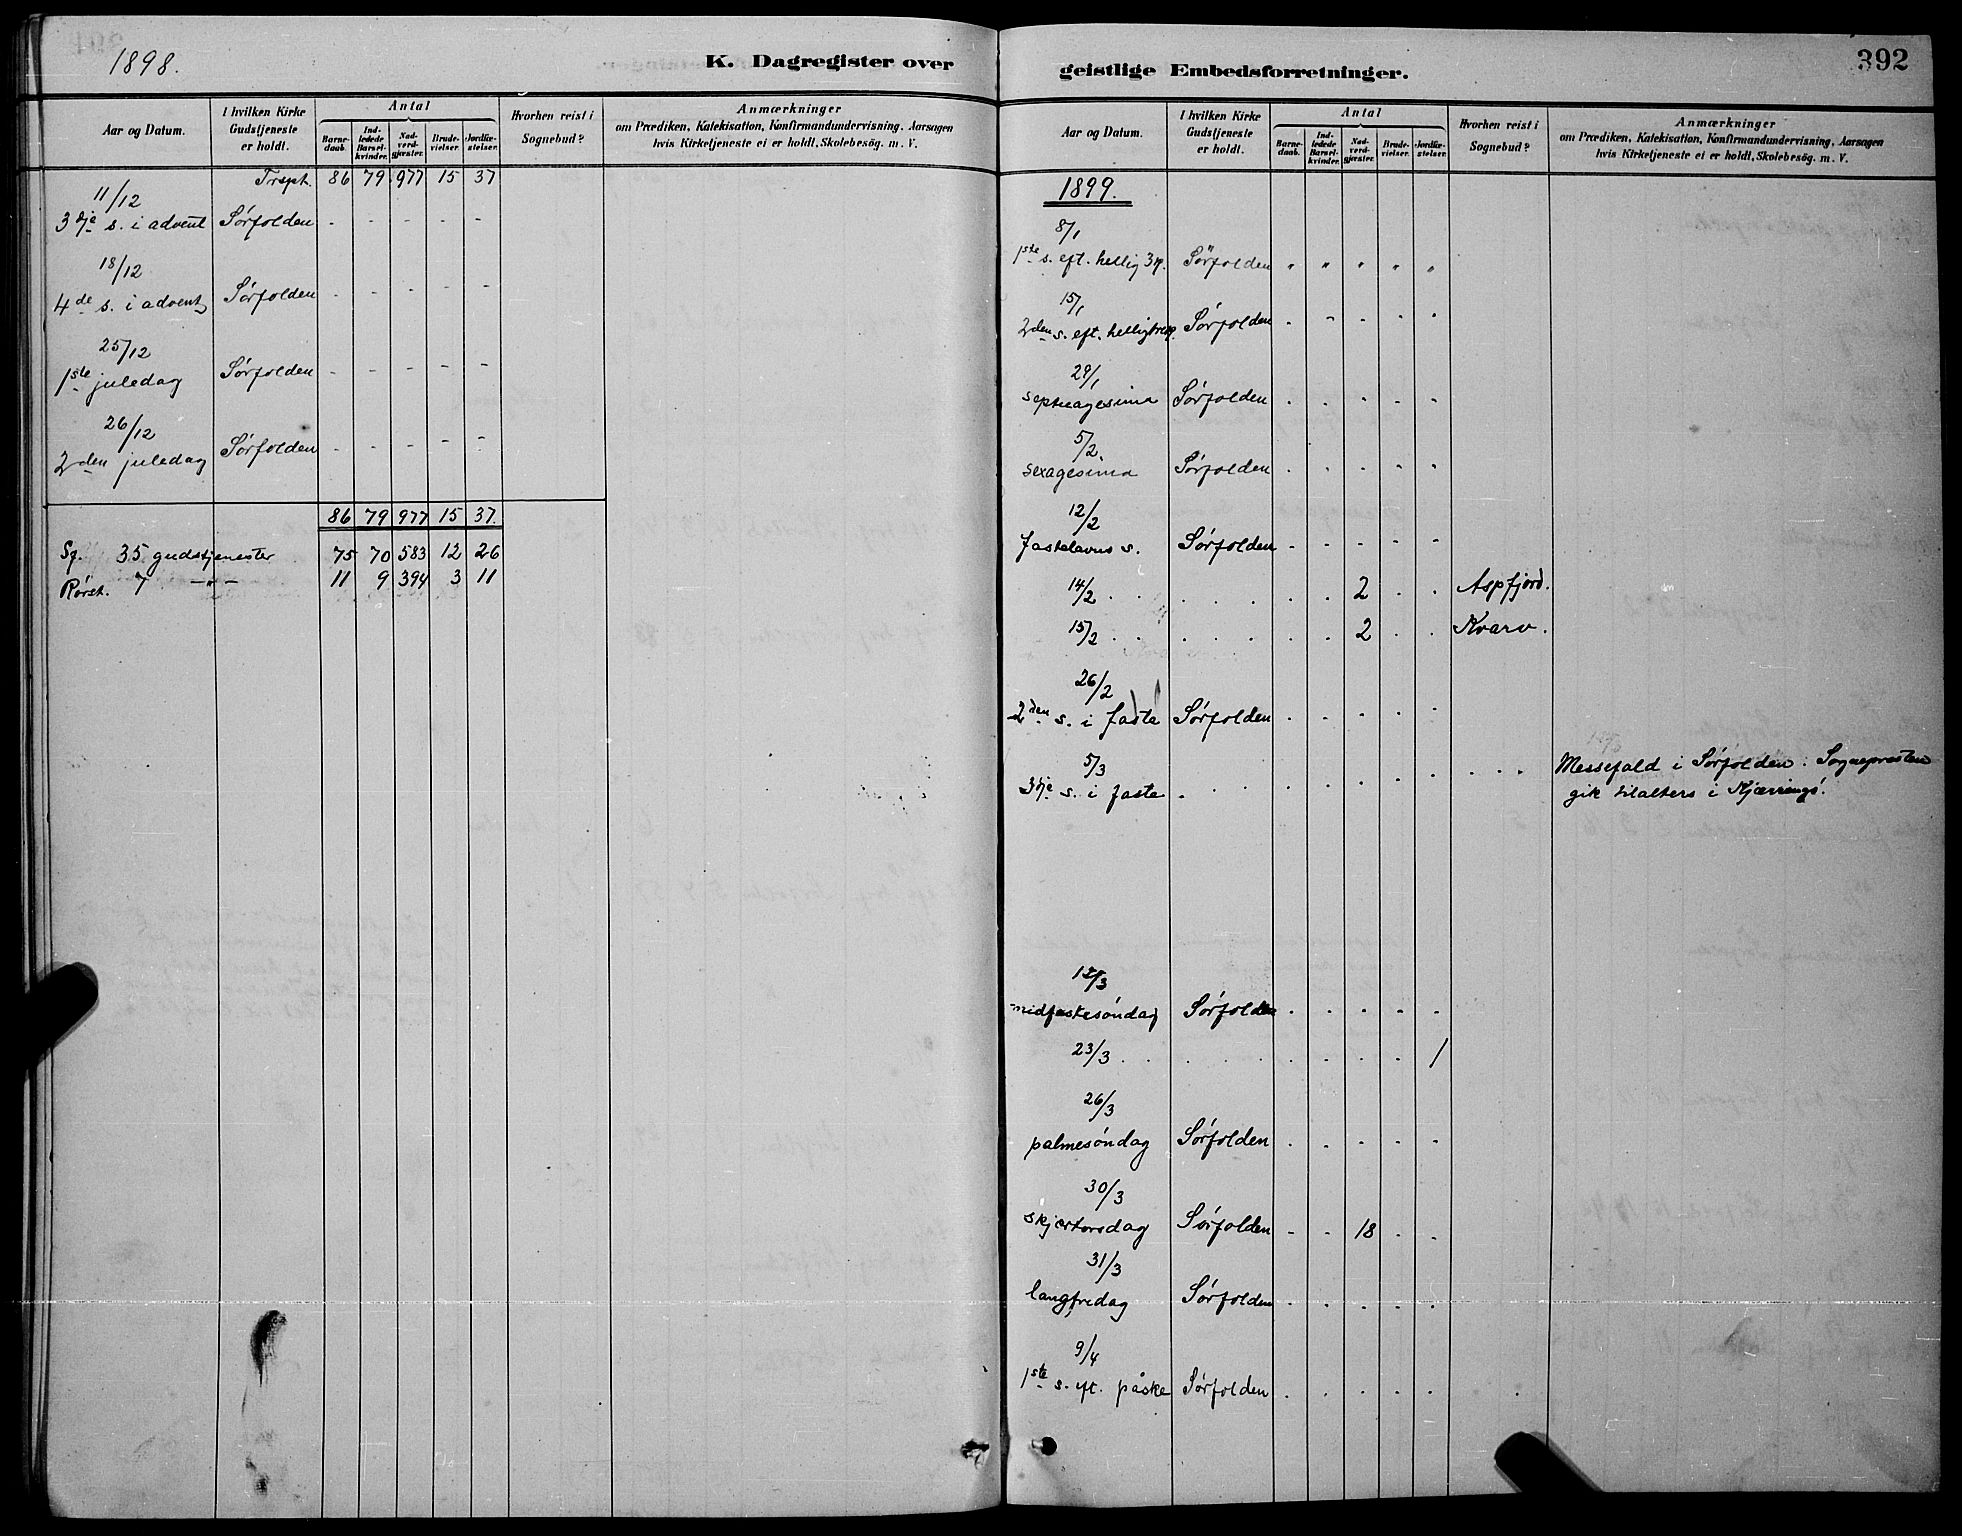 1898.
K. Dagregister over
Aar og Datum. I hvilken Kirke Gudstjeneste er holdt. Antal Barnedaab. Indledede Barselkvinder. Nadverdgjæster. Brudevielser. Jordfæstelser. Hvorhen reist i Sognebud? Anmærkninger
om Prædiken, Katekisation, Konfirmandundervisning, Aarsagen
hvis Kirketjeneste ei er holdt, Skolebesøg. m. V.
Trspt. 86 79 977 15 37
11/12
3dje s. i advent Sørfolden - - - - -
18/12
4de s. i advent Sørfolden - - - - -
25/12
1ste juledag Sørfolden - - - - -
26/12
2den juledag Sørfolden - - - - -
86 79 977 15 37.
Sf. 35 gudstjenester 75 70 583 12 26
Rørst. 7 -"- 11 9 394 3 11
392
geistlige Embedsforretninger.
Aar og Datum. I hvilken Kirke Gudstjeneste er holdt. Antal Barnedaab. Indledede Barselkvinder. Nadverdgjæster. Brudevielser. Jordfæstelser. Hvorhen reist i Sognebud? Anmærkninger
om Prædiken, Katekisation, Konfirmandundervisning, Aarsagen
hvis Kirketjeneste ei er holdt, Skolebesøg. m. V.
1899.
8/1
1ste s. eft. hellig 3k. Sørfolden " " " " "
15/1
2den s. eft. helligtrek. Sørfolden
29/1
septuagesima Sørfolden
5/2.
sexagesima Sørfolden
12/2
fastelavns s. Sørfolden
14/2 2 Aspfjord.
15/2 2 Kvarv.
26/2
2den s. i faste Sørfolden
5/3
3dje s. i faste Messefald i Sørfolden: Sognepresten
gik tilalters i Kjærringö.
12/3
midfastesöndag Sørfolden
23/3 1
26/3
palmesöndag Sørfolden
30/3
skjærtorsdag Sørfolden 18
31/3
langfredag Sørfolden
9/4
1ste s. eft. påske Sørfolden